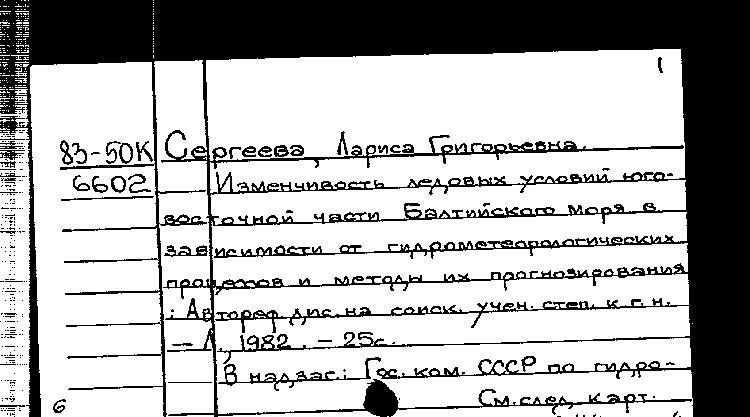 1
83-50К Сергеева, Лариса Григорьевна.
6602 Изменчивость ледовых условий юго-
восточной части Балтийского моря в
зависимости от гидрометеорологических
процессов и методы их прогнозирования
: Автореф. дис. на соиск. учен. степ. к.г.н.
– Л., 1982. – 25с.
В надзаг.: Гос. ком. СССР по гидро-
6 См. след. карт.